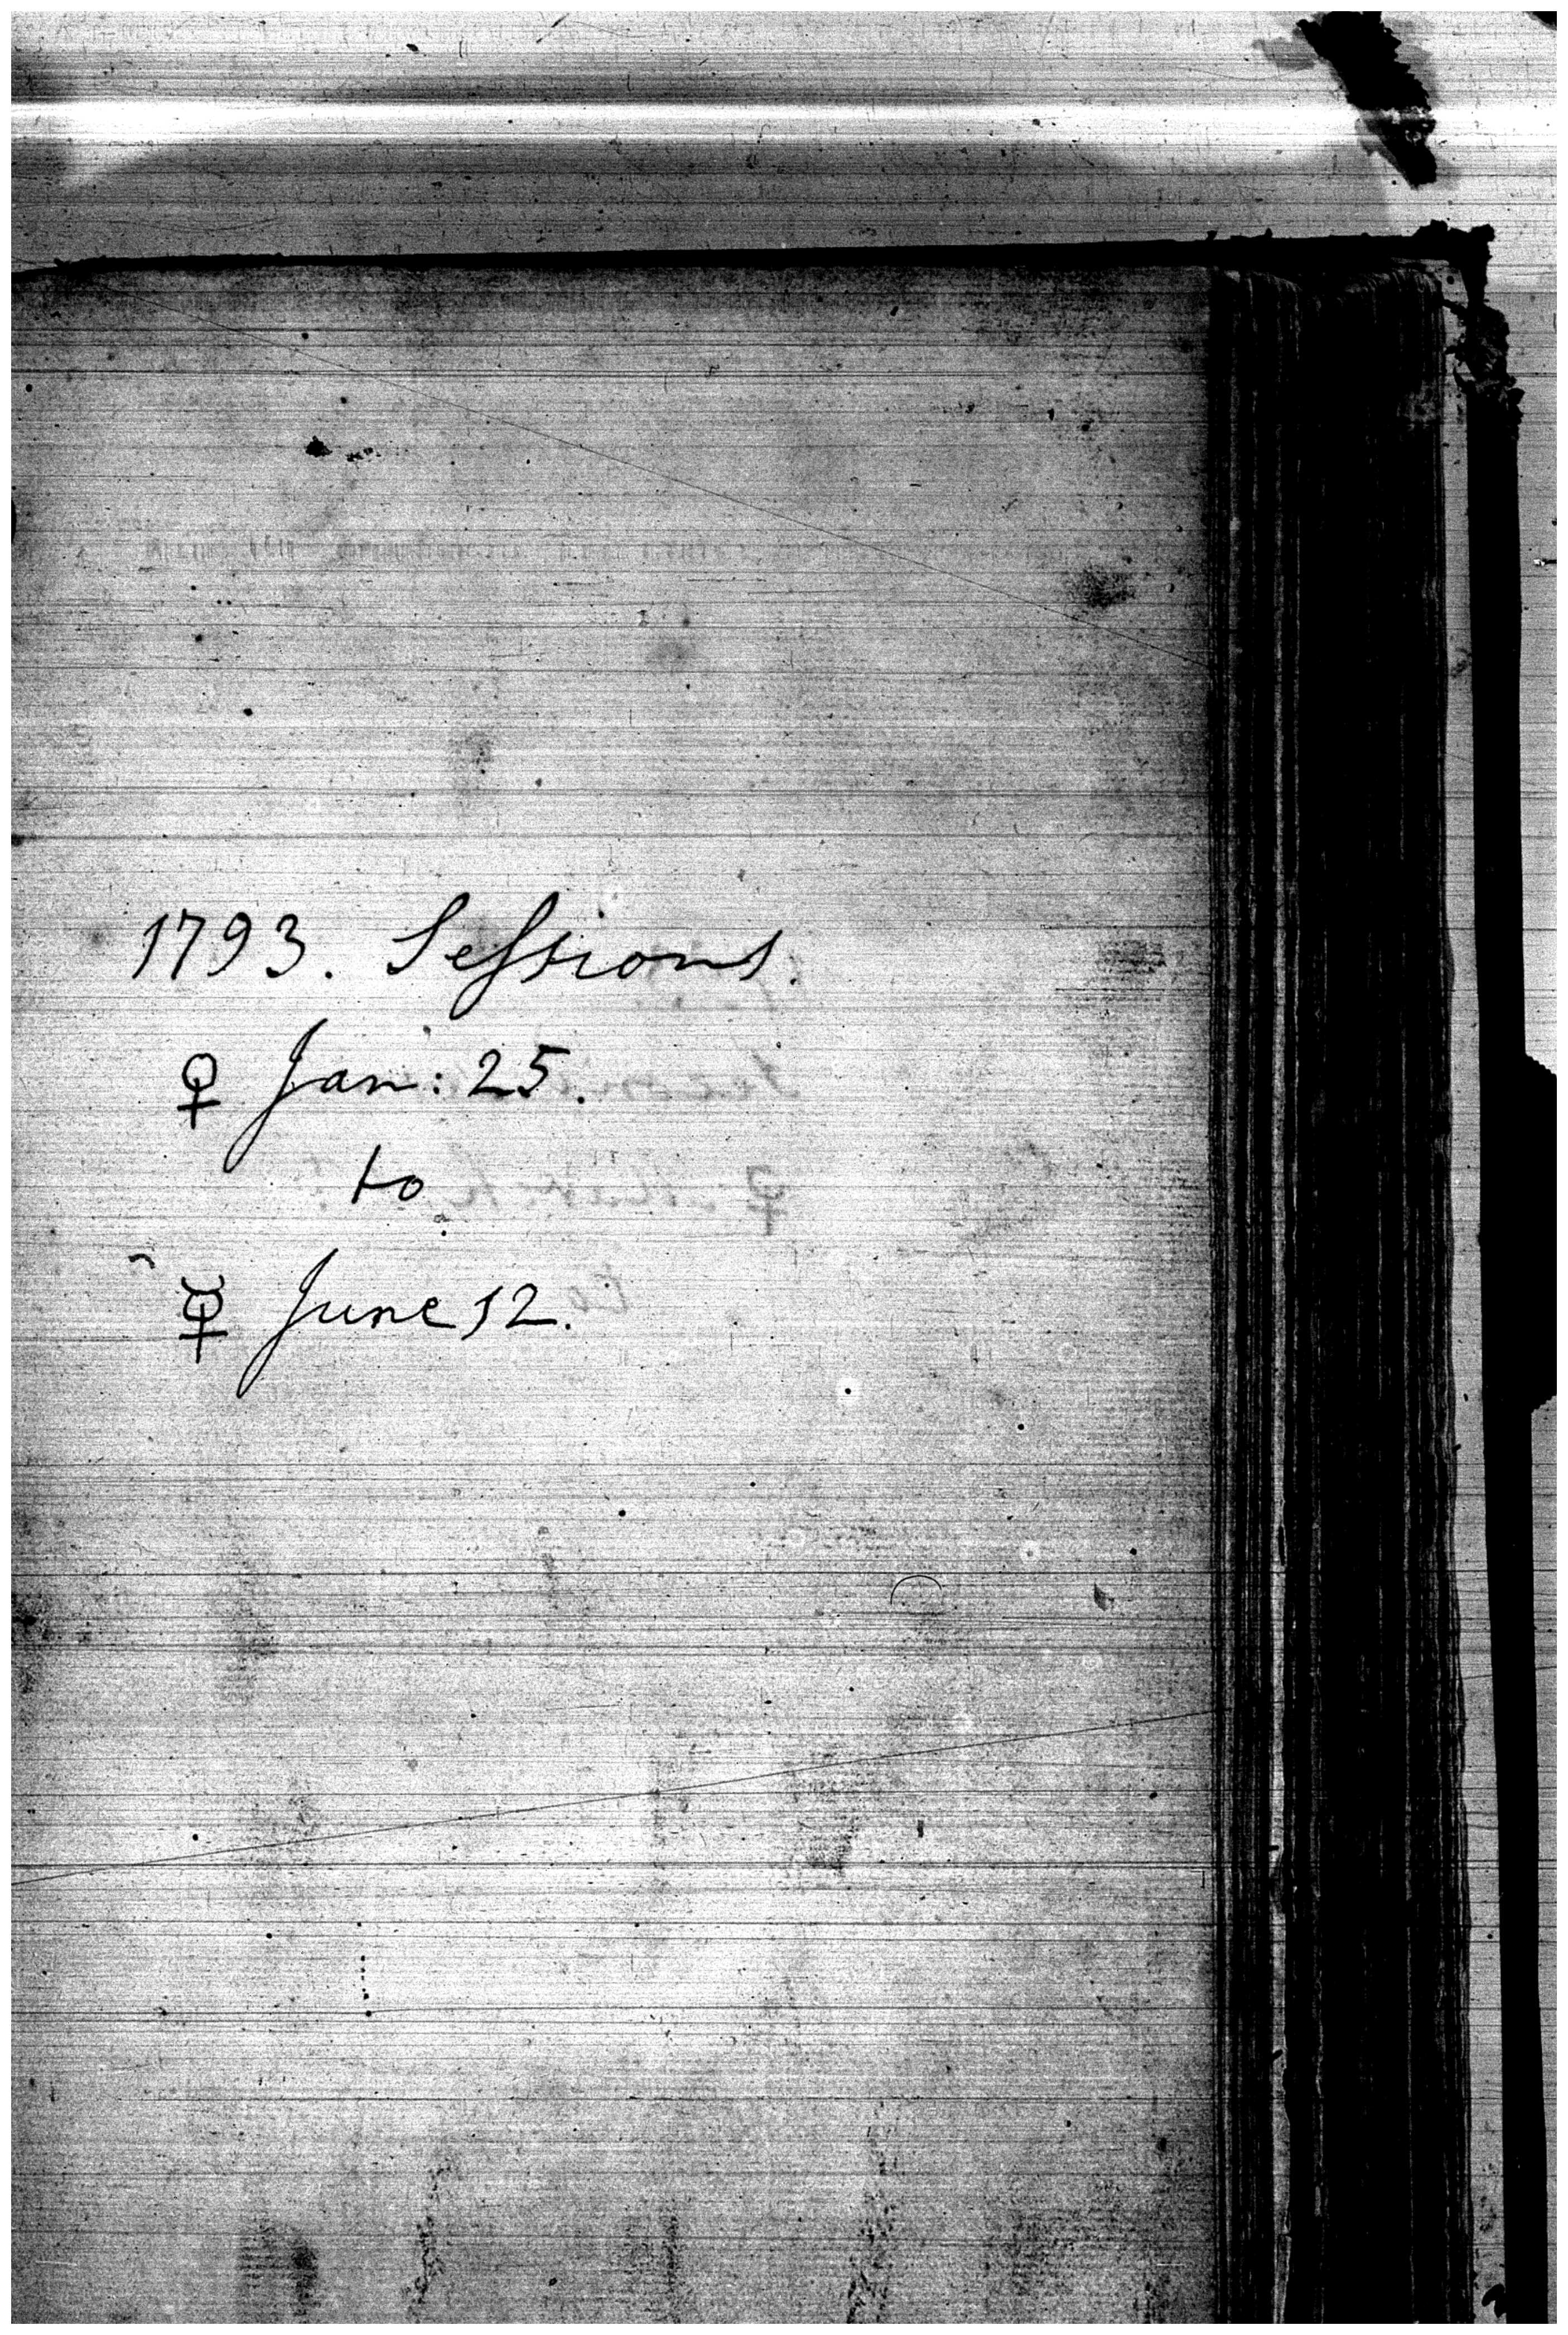 1793. Seſsions.
♀ Jan: 25.
to
☿ June 12.